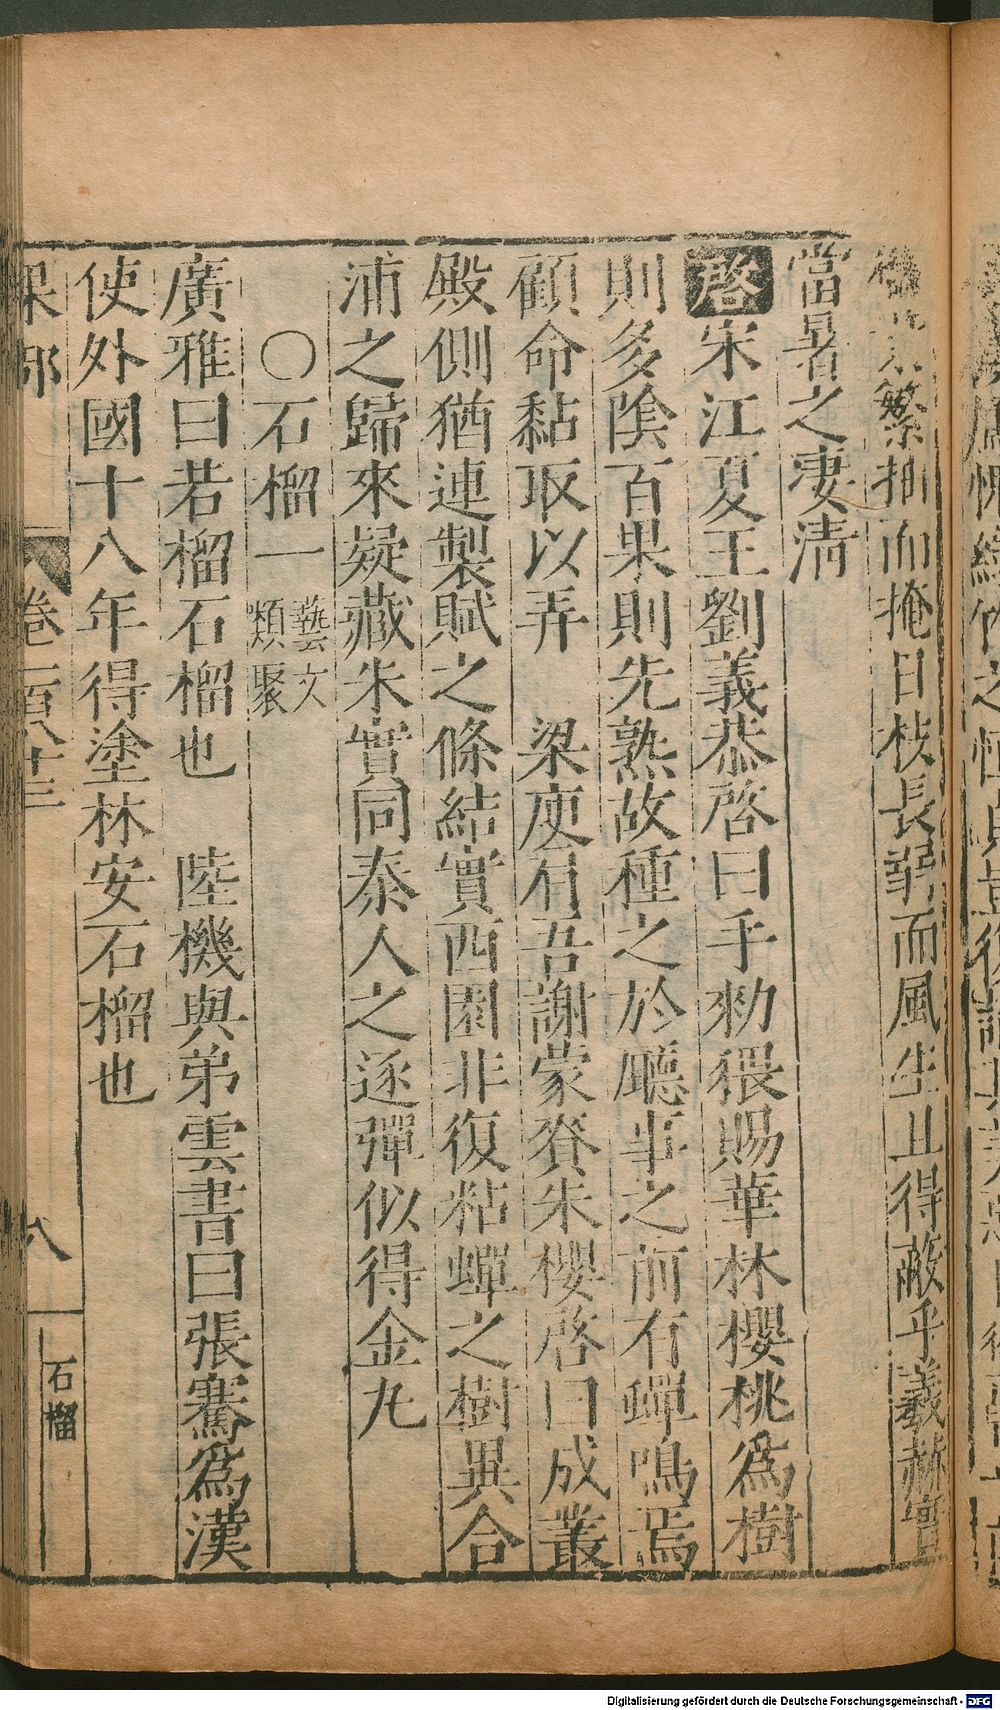 繁抑而掩日枝長弱而風生且得蔽乎羲赫實
當暑之淒清
啓宋江夏王劉義恭啓曰手勑猥賜華林櫻桃爲樹
則多陰百果則先熟故種之於廳事之前有蟬鳴焉
顧命黏取以弄　梁庾肩吾謝蒙賚朱櫻啓曰成叢
殿側猶連製賦之條結實西園非復粘蟬之樹異合
浦之歸來疑藏朱實同泰人之逐彈似得金丸
〇石榴一 藝文類聚
廣雅曰若榴石榴也　陸機與弟雲書曰張騫爲漢
使外國十八年得塗林安石榴也
果部 卷一百八十三 八 石榴
Digitalisierung gefördert durch die Deutsche Forschungsgemeinschaft - DFG